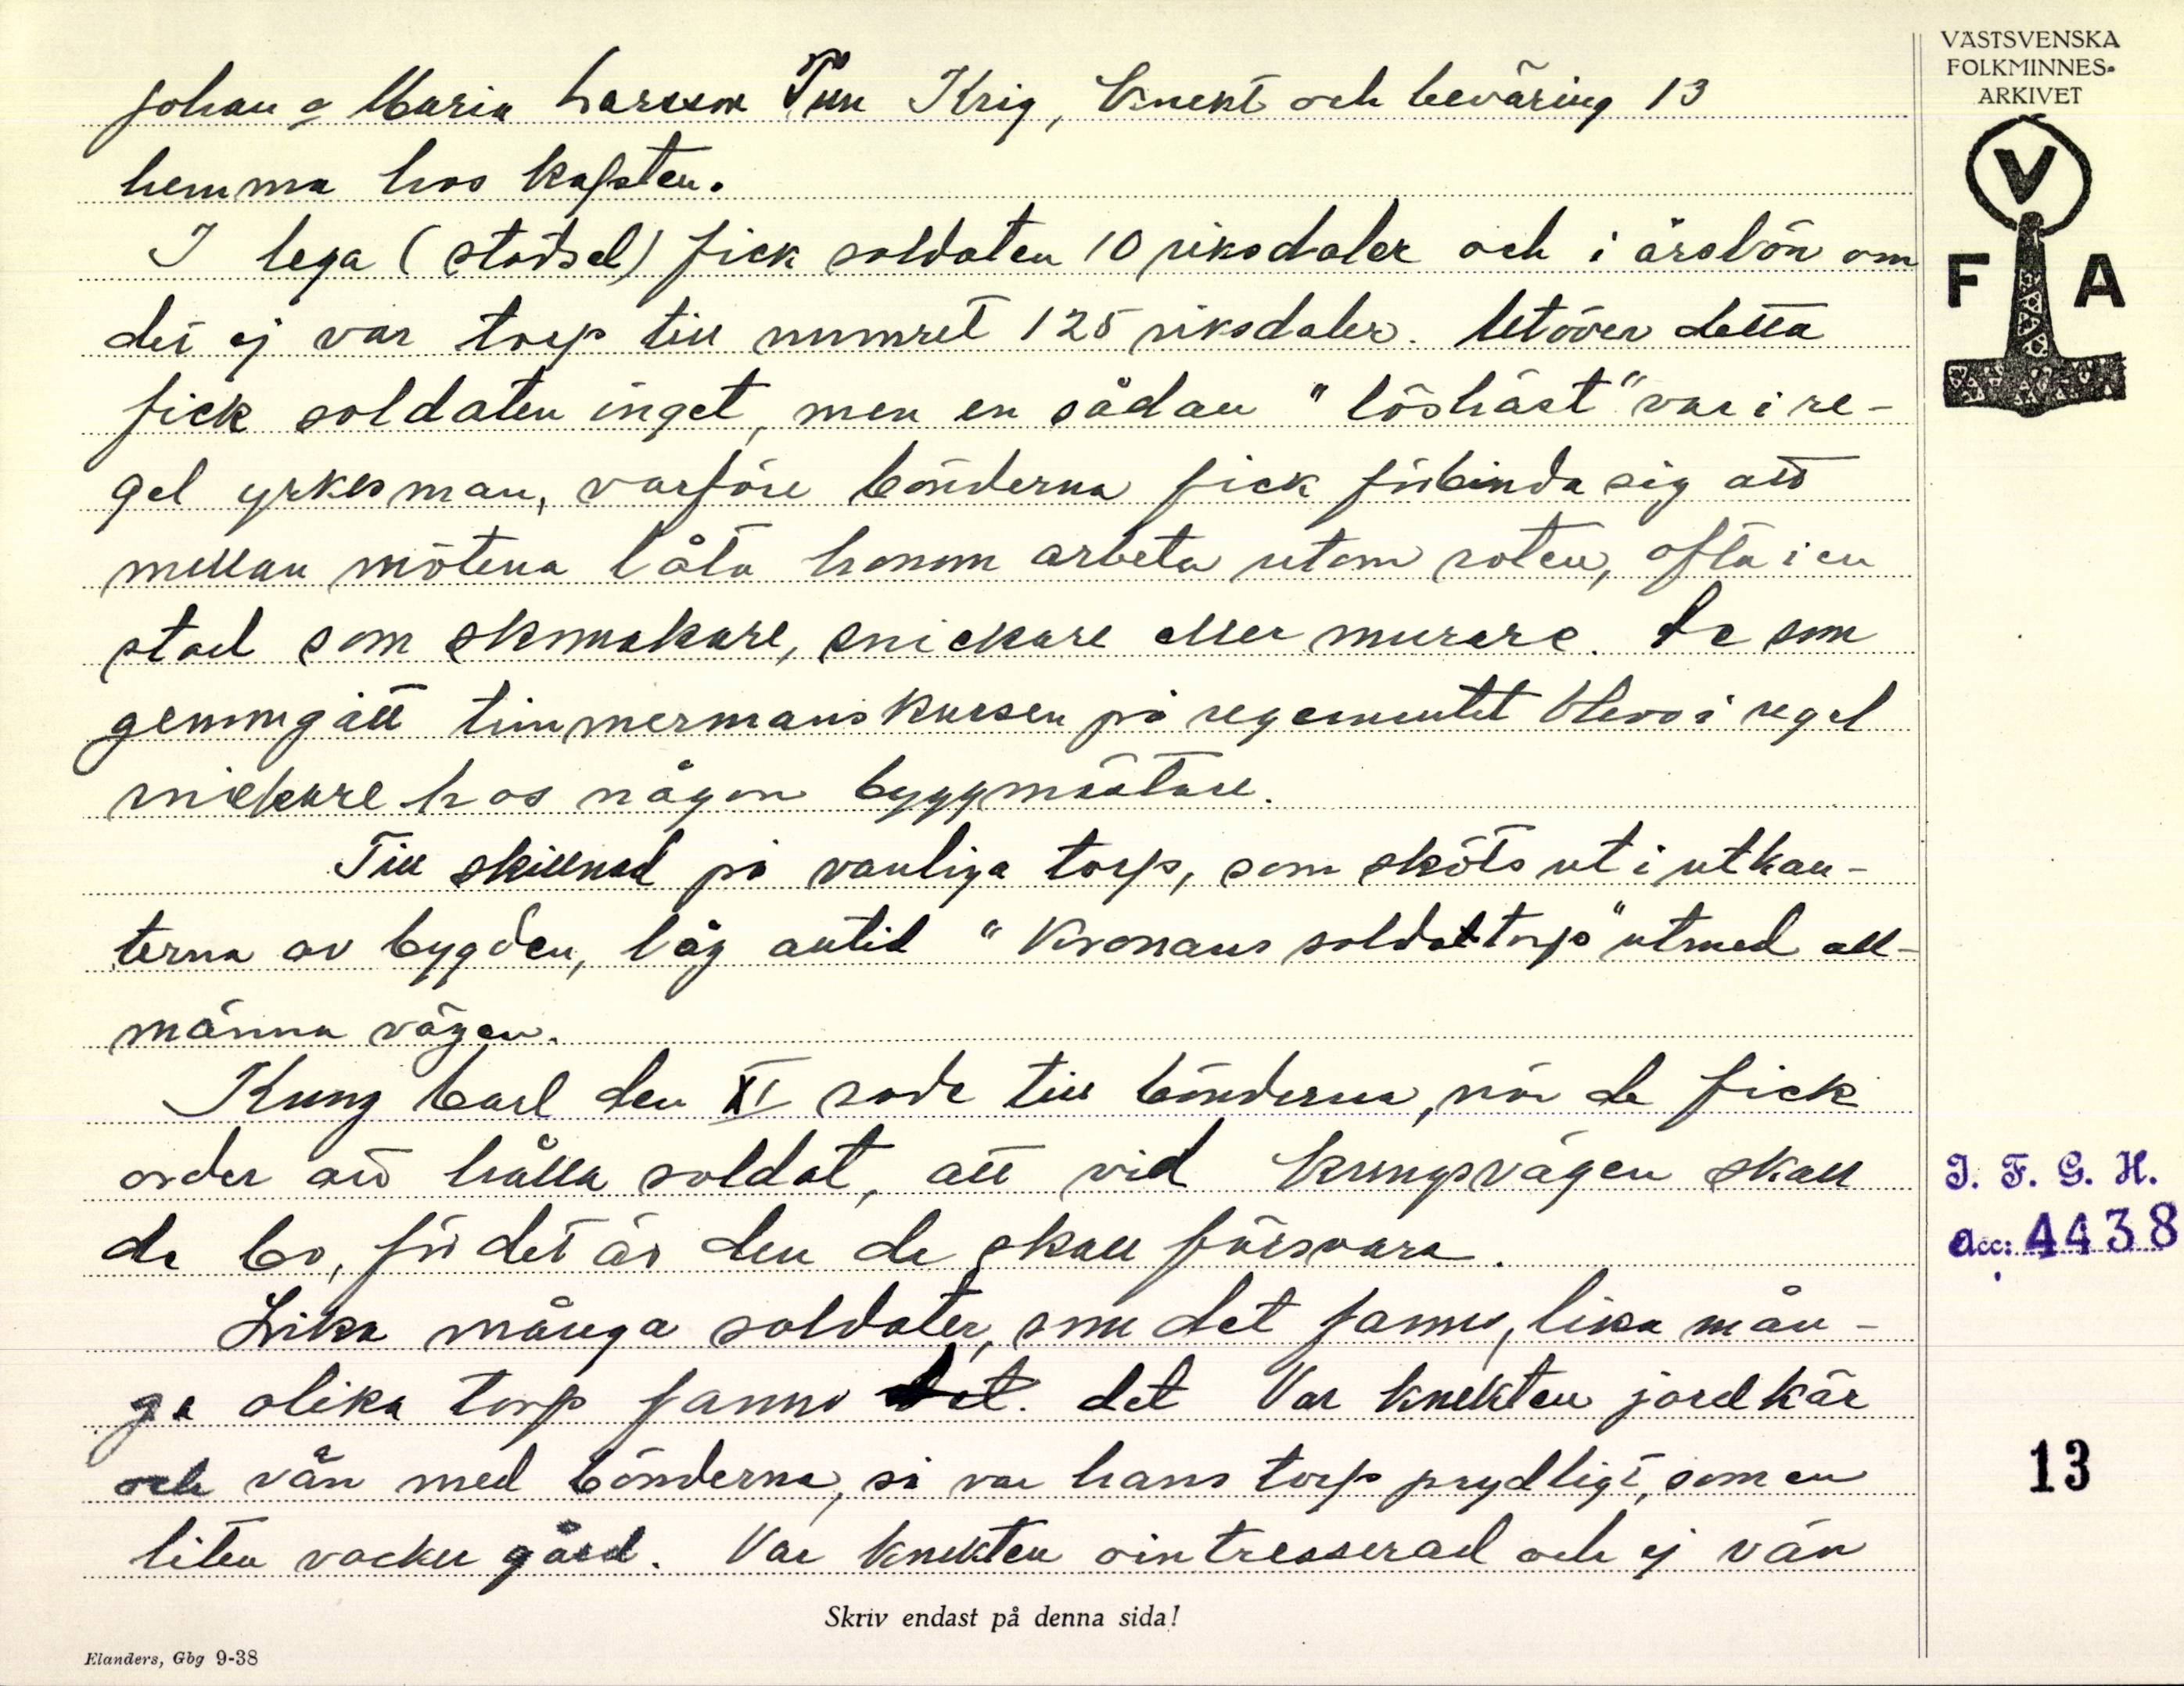 Johan o Maria Larsson Tun Krig, knekt och beväring 13
hemma hos kapten.
I lega (städsel) fick soldaten 10 riksdaler och i årslön om
det ej var torp till numret 125 riksdaler. Utöver detta
fick soldaten inget, men en sådan "löshäst" var i re-
gel yrkesman, varföre bönderna fick förbinda sig att
mellan mötena låta honom arbeta utom roten, ofta i en
stad som skomakare, snickare eller murare. De som
genomgått timmermanskursen på regementet blevo i regel
snickare hos någon byggmästare.
Till skillnad på vanliga torp, som sköts ut i utkan-
terna av bygden, låg alltid "Kronans soldattorp" utmed all-
männa vägen.
Kung Carl den XI sade till bönderna, när de fick
order att hålla soldat, att vid kungsvägen skall
de bo, för det är den de skall försvara.
Lika många soldater, som det fanns, lika mån-
ga olika torp fanns det. Var knekten jordkär
och vän med bönderna, så var hans torp prydligt, som en
liten vacker gård. Var knekten ointresserad och ej vän
Skriv endast på denna sida!
Elanders, Gbg 9-38
VÄSTSVENSKA
FOLKMINNES-
ARKIVET
V
F A
I. F. G. H.
Acc: 4438
13